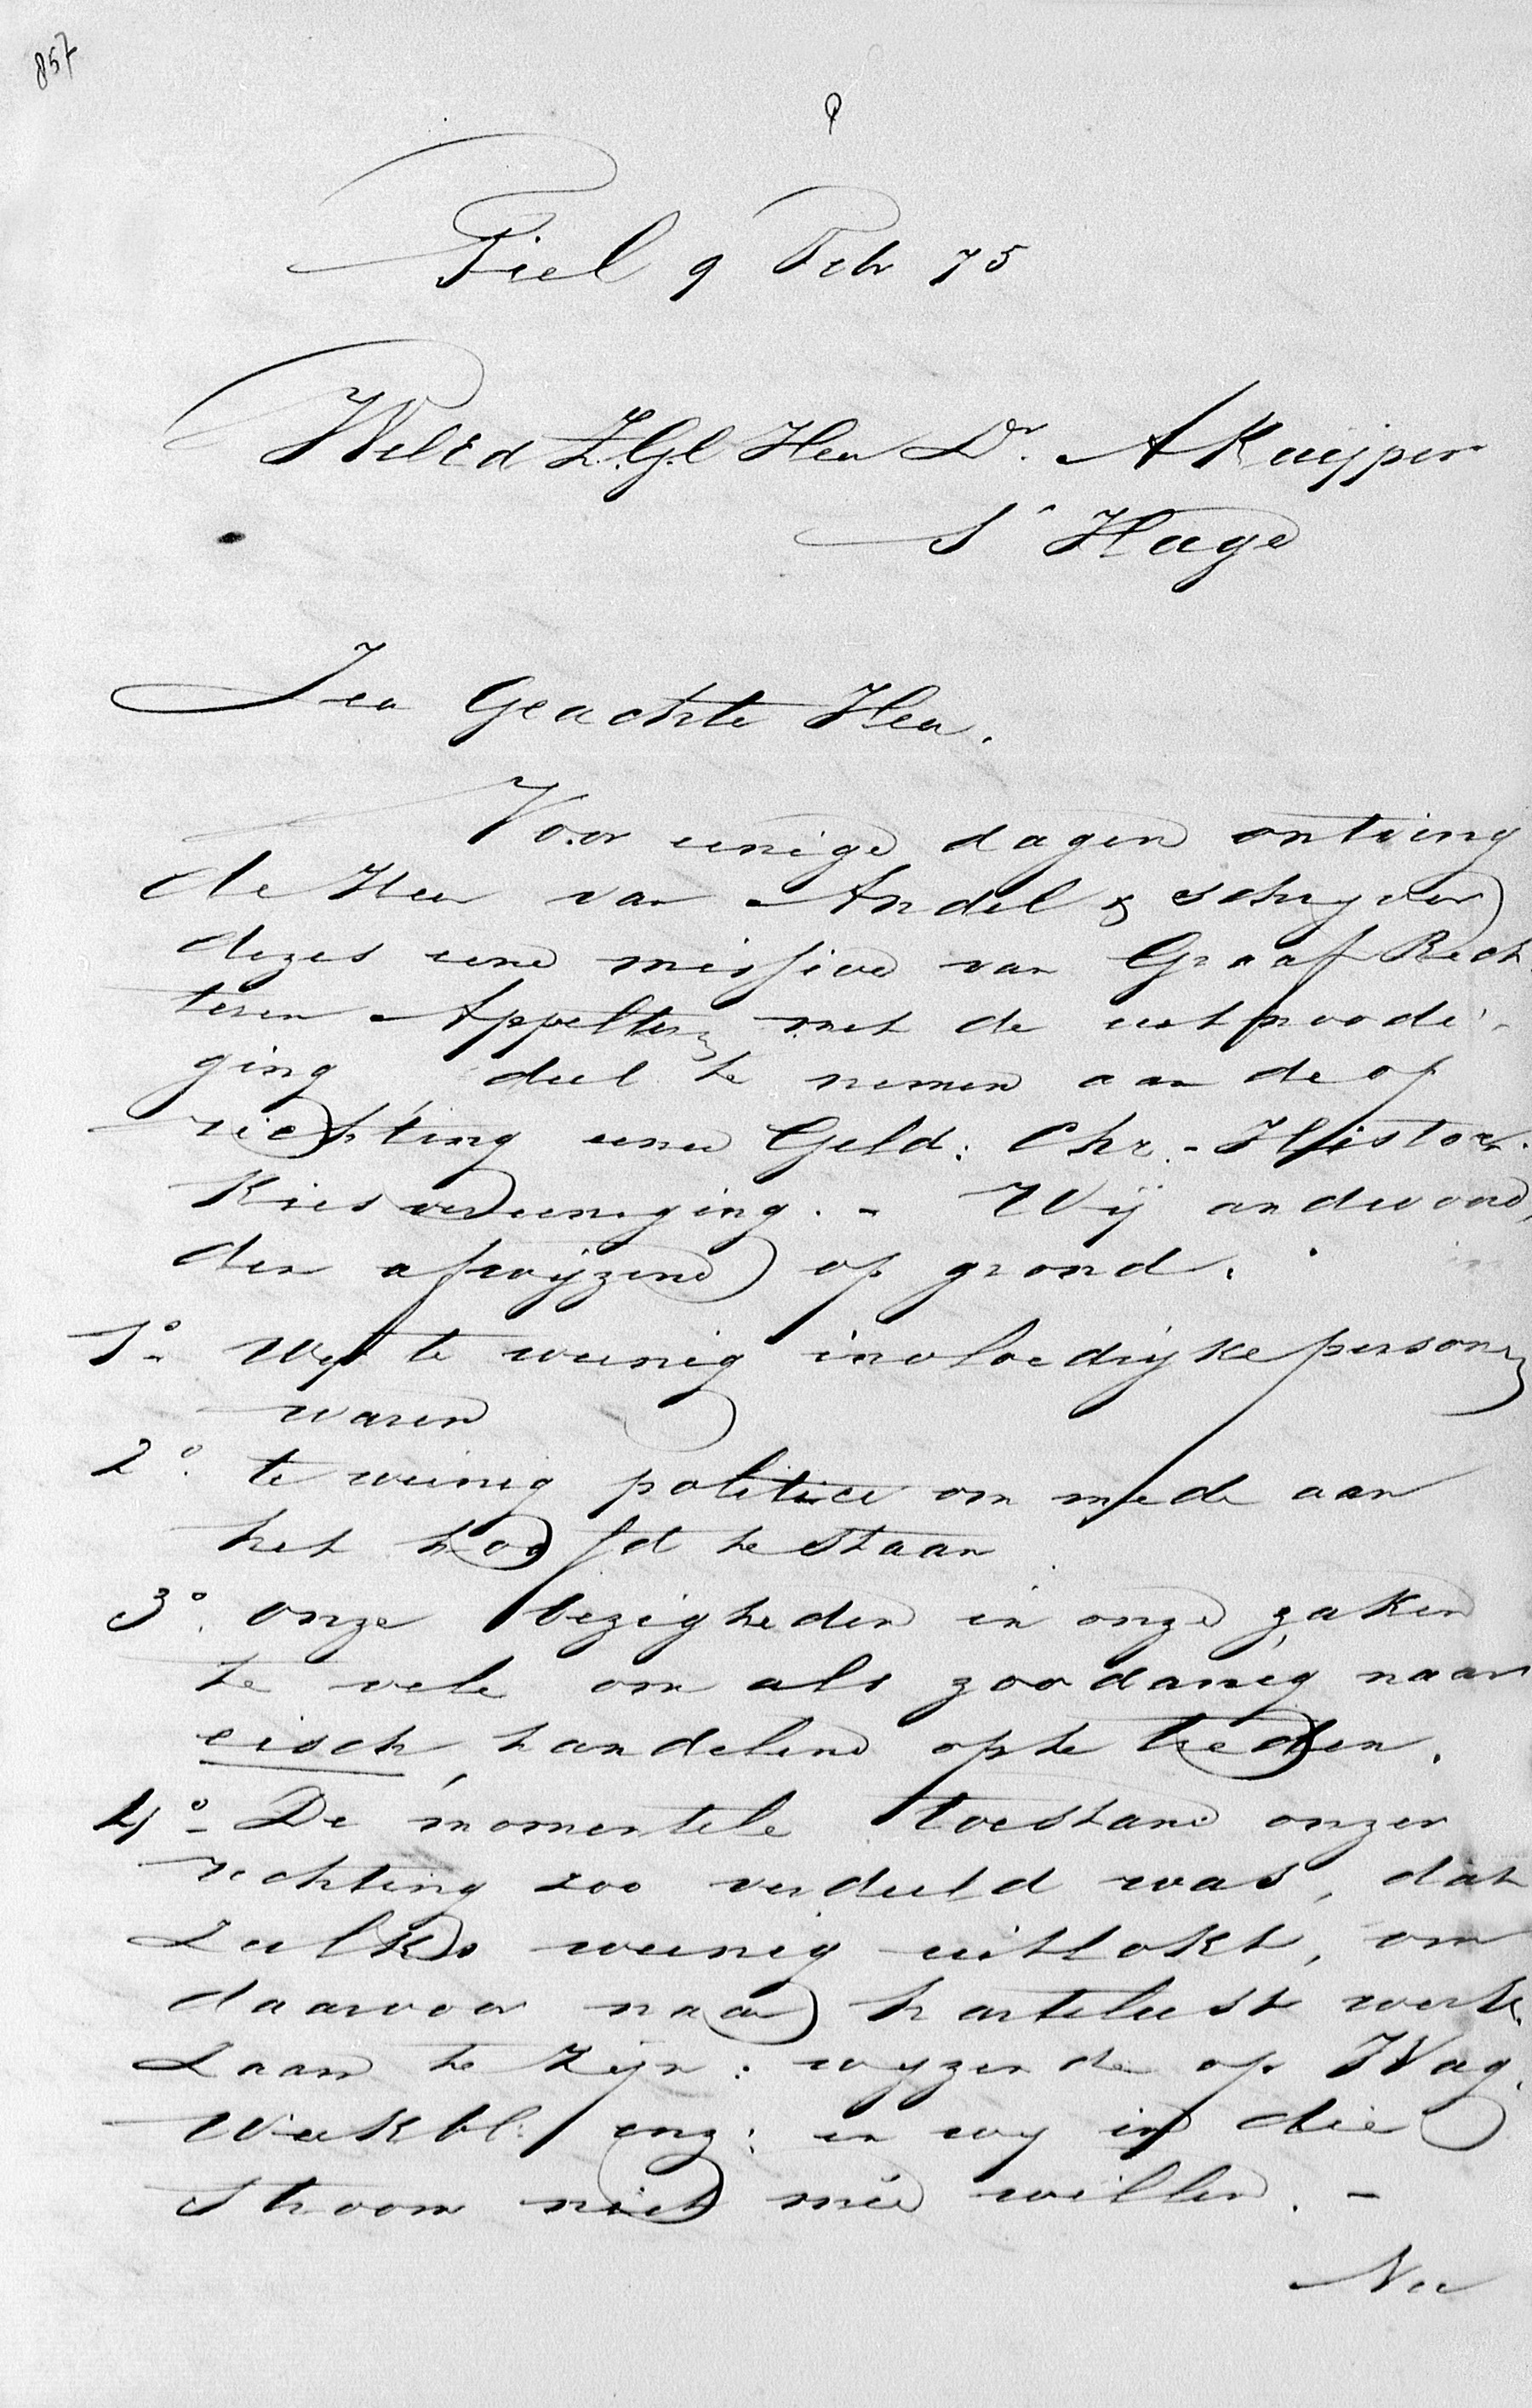 857
Tiel 9 Feb 75
WelEd Z.Gl Heer Dr. A Kuijper
S' Hage
Zeer Geachte Heer.
Voor eenige dagen ontving
de Heer van Andel & schrijver
dezes eene missive van Graaf Rech
teren Appeltern met de uitnoodi-
ging, deel te nemen aan de op
richting eener Geld: Chr.-Histor.
Kiesvereeniging. - Wij andwoord,
den afwijzend op grond.
1o. Wij te weinig invloedrijke personen
waren
2o. te weinig politici om mede aan
het hoofd te staan
3o. onze bezigheden in onze zaken
te vele om als zoodanig naar
eisch, handelend op te treden.
4o. De momentele toestand onzer
richting zoo verdeeld was, dat
zulks weinig uitlokt, om
daarvoor naar hartelust werk
zaam te zijn: wijzende op Wag.
Weekbl. enz: en wij in die
stroom niet meê willen. -
Nu